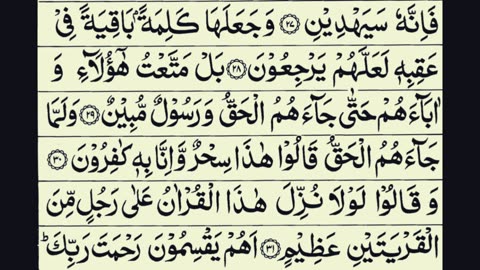 فَاِنَّهٗ سَيَهْدِيْنِ ۝٢٧ وَجَعَلَهَا كَلِمَةًۢ بَاقِيَةً فِيْ
عَقِبِهٖ لَعَلَّهُمْ يَرْجِعُوْنَ ۝٢٨ بَلْ مَتَّعْتُ هٰٓؤُلَآءِ وَ
اٰبَآءَهُمْ حَتّٰى جَآءَهُمُ الْحَقُّ وَرَسُوْلٌ مُّبِيْنٌ ۝٢٩ وَلَمَّا
جَآءَهُمُ الْحَقُّ قَالُوْا هٰذَا سِحْرٌ وَّاِنَّا بِهٖ كٰفِرُوْنَ ۝٣٠
وَقَالُوْا لَوْلَا نُزِّلَ هٰذَا الْقُرْاٰنُ عَلٰى رَجُلٍ مِّنَ
الْقَرْيَتَيْنِ عَظِيْمٍ ۝٣١ اَهُمْ يَقْسِمُوْنَ رَحْمَتَ رَبِّكَ ؕ